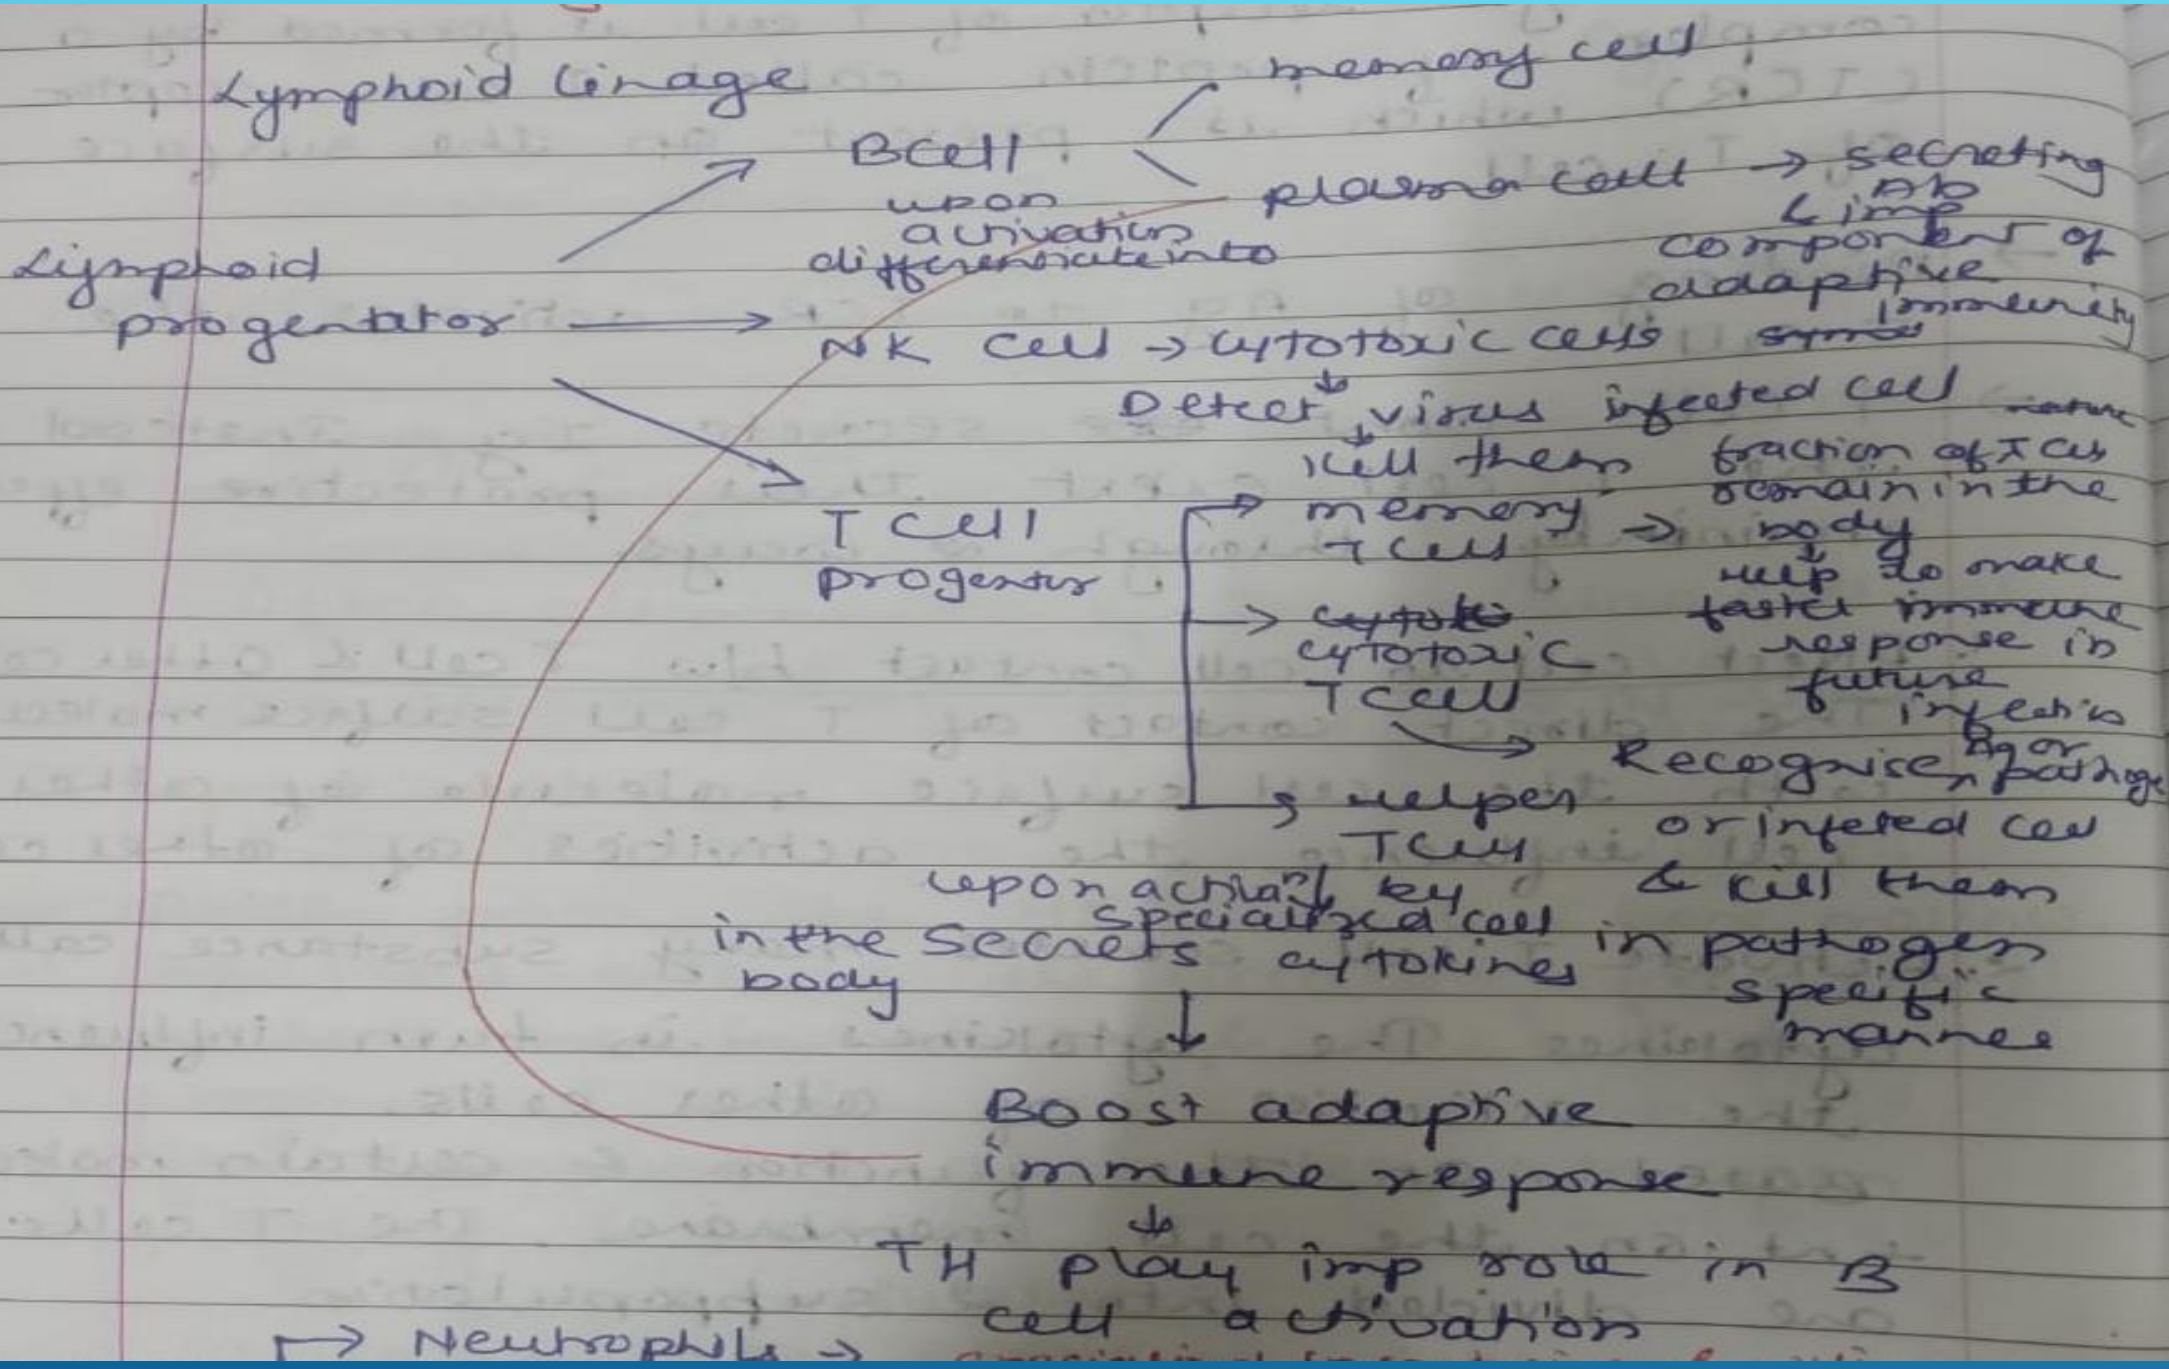 Lymphoid linage
memory cell
BCell
upon
activation
differenciate into
plasma cell → secreting
Ab
& imp
component of
adaptive
immunity
Lymphoid
progentator
NK cell → cytotoxic cells
↓
Detect virus infected cell
↓
kill them
T cell
progentor
→ memory
T cell →
mature
fraction of T cells
remain in the
body
↓
help to make
faster immune
response in
future
infection
→ cytoto
cytotoxic
T cell
→ Recognise, Ag or pathoge
or infeted cell
& kill them
in pathogen
specific
manner
→ Helper
T Cell
upon activan by
specialized cell
in the secrets cytokines
body
↓
Boost adaptive
immune response
↓
TH play imp role in B
cell activation
→ Neutrophils →